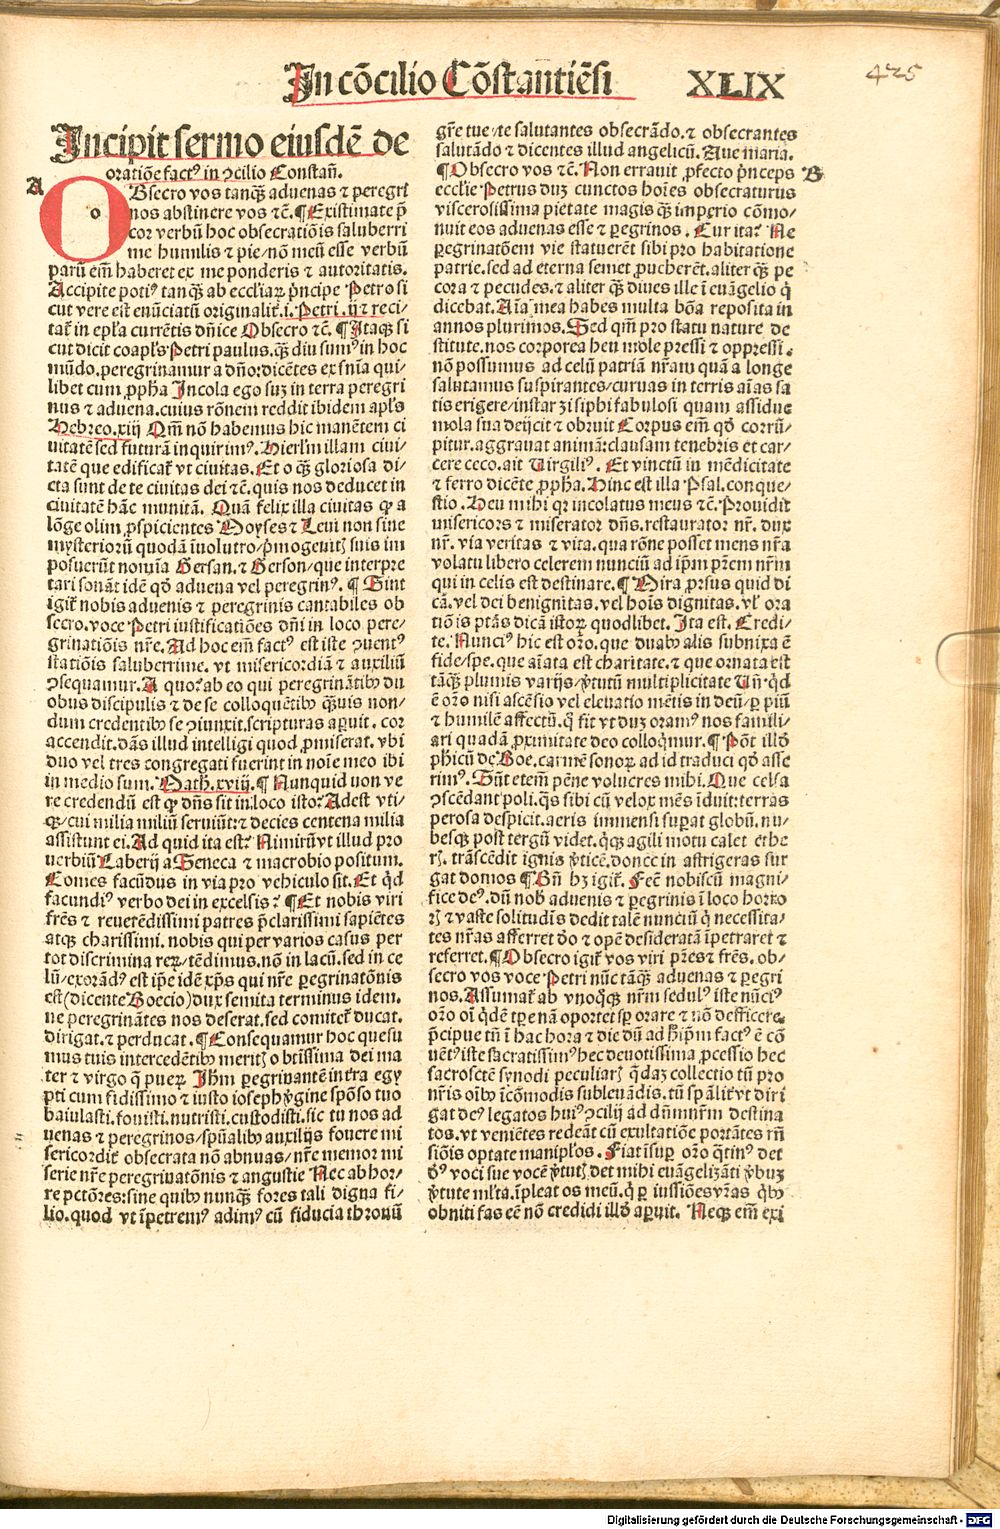 In cōcilio Cōstantiēsi
XLIX
425
Incipit sermo eiusdē de
oratiōe factꝰ in ꝯcilio Constan̄.
A
OBsecro vos tanqȝ aduenas ⁊ peregri
nos abstinere vos ⁊c̄. ¶ Existimate p̄
cor verbū hoc obsecratiōis saluberri
me humilis ⁊ pie/nō meū esse verbū
parū em̄ haberet ex me ponderis ⁊ autoritatis.
Accipite potiꝰ tanqȝ ab ecclīaꝝ p̄ncipe Petro si
cut vere est enūciatū originalit̄.i. Petri .ij ⁊ reci
tat̄ in ep̄la currētis dn̄ice Obsecro ⁊c̄. ¶ Itaqȝ si
cut dicit coapl̄s Petri paulus. qȝ diu sumꝰ in hoc
mūdo.peregrinamur a dn̄o:dicētes ex sn̄ia qui/
libet cum ꝓpha Incola ego suȝ in terra peregri
nus ⁊ aduena.cuius rōnem reddit ibidem apl̄s
Hebreo.xiij Qm̄ nō habemus hic manētem ci
uitatē sed futurā inquirimꝰ. Hierl̄m illam ciui/
tatē que edificat̄ vt ciuitas. Et o qȝ gloriosa di/
cta sunt de te ciuitas dei ⁊c̄. quis nos deducet in
ciuitatē hāc munitā. Quā felix illa ciuitas qꝫ a
lōge olim ꝓspicientes Moyses ⁊ Leui non sine
mysteriorū quodā īuolutro/p̄mogenitȝ suis im
posuerūt nomīa Gersan.⁊ Gerson/que interpre
tari sonāt idē qd̄ aduena vel peregrinꝰ. ¶ Sint
igit̄ nobis aduenis ⁊ peregrinis cantabiles ob
secro.voce Petri iustificatiōes dn̄i in loco pere/
grinatiōis nr̄e. Ad hoc em̄ factꝰ est iste ꝯuentꝰ
stationis saluberrime. vt misericordiā ⁊ auxiliū
ꝯsequamur. A quo? ab eo qui peregrinātibꝰ du
obus discipulis ⁊ de se colloquētibꝰ qȝuis non/
dum credentibꝰ se ꝯiunxit.scripturas aꝑuit. cor
accendit.dās illud intelligi quod ꝓmiserat. vbi
duo vel tres congregati fuerint in noīe meo ibi
in medio sum. Math.xviij. ¶ Nunquid non ve
re credendū est qꝫ dn̄s sit in loco isto? Adest vti/
qȝ/cui milia miliū seruiūt:⁊ decies centena milia
assistunt ei. Ad quid ita est? Nimirū vt illud pro
uerbiū Laberij a Seneca ⁊ macrobio positum.
Comes facūdus in via pro vehiculo sit. Et qd̄
facundiꝰ verbo dei in excelsis? ¶ Et nobis viri
fr̄es ⁊ reuerēdissimi patres p̄clarissimi sapiētes
atqȝ charissimi. nobis qui per varios casus per
tot discrimina reꝝ/tēdimus.nō in lacū.sed in ce
lū/exorādꝰ est ip̄e idē xp̄s qui nr̄e ꝑegrinatōnis
est(dicente Boecio)dux semita terminus idem.
ne peregrinātes nos deserat.sed comitet̄ ducat.
dirigat ⁊ perducat. ¶ Consequamur hoc quesu
mus tuis intercedētibꝰ meritȝ o btissima dei ma
ter ⁊ virgo q̄ pueꝝ Ihm̄ ꝑegrinantē intra egy
pti cum fidissimo ⁊ iusto ioseph ꝟgine spōso tuo
baiulasti.fouisti.nutristi.custodisti.sic tu nos ad
uenas ⁊ peregrinos/spūalibꝰ auxilijs fouere mi
sericordit̄ obsecrata nō abnuas/nr̄e memor mi
serie nr̄e peregrinatōnis ⁊ angustie Nec abhor/
re pctōres:sine quibꝰ nunqȝ fores tali digna fi/
lio.quod vt īpetremꝰ adimꝰ cū fiducia thronū
gr̄e tue/te salutantes obsecrādo.⁊ obsecrantes
salutādo ⁊ dicentes illud angelicū. Aue maria.
¶ Obsecro vos ⁊c̄. Non errauit ꝓfecto p̄nceps
B
ecclīe Petrus duȝ cunctos hoīes obsecraturus
viscerosissima pietate magis qȝ imperio cōmo/
nuit eos aduenas esse ⁊ ꝑegrinos. Cur ita? Ne
ꝑegrinatōem vie statuerēt sibi pro habitatione
patrie.sed ad eterna semet ꝓucherēt.aliter qȝ pe
cora ⁊ pecudes.⁊ aliter qȝ diues ille ī euāgelio q̇
dicebat. Aīa mea habes multa bōa reposita in
annos plurimos. Sed qm̄ pro statu nature de
stitute.nos corporea heu mole pressi ⁊ oppressi.
nō possumus ad celū patriā nr̄am quā a longe
salutamus suspirantes/curuas in terris aīas sa
tis erigere/instar zisiphi fabulosi quam assidue
mola sua deijcit ⁊ obruit Corpus em̄ qd̄ corrū/
pitur.aggrauat animā:clausam tenebris et car/
cere ceco.ait Virgiliꝰ. Et vinctū in mēdicitate
⁊ ferro dicēte ꝓpha. Hinc est illa Psal.conque/
stio. Heu mihi qr incolatus meus ⁊c̄. Prouidit
misericors ⁊ miserator dn̄s.restaurator nr̄. dux
nr̄. via veritas ⁊ vita.qua rōne posset mens nr̄a
volatu libero celerem nunciū ad ip̄m pr̄em nr̄m
qui in celis est destinare. ¶ Mira ꝓrsus quid di
cā.vel dei benignitas.vel hoīs dignitas.vl̄ ora
tiōis ptās dicā istoꝝ quodlibet. Ita est. Credi/
te. Nunciꝰ hic est or̄o.que duabꝰ alis subnixa ē
fide/spe.que aīata est charitate.⁊ que ornata est
tāqȝ plumis varijs/ꝟtutū multiplicitate Vn̄ qd̄
ē or̄o nisi ascēsio vel eleuatio mētis in deū/ꝑ piū
⁊ humilē affectū.q̄ fit vt duȝ oramꝰ nos famili/
ari quadā ꝓximitate deo colloq̄mur. ¶ Pōt illd̄
ꝓphicū de Boe.carmē sonoꝝ ad id traduci qd̄ asse
rimꝰ. Sūt etem̄ pēne volucres mihi. Que celsa
ꝯscēdant poli.q̄s sibi cū velox mēs īduit:terras
perosa despicit.aeris immensi suꝑat globū.nu/
besqȝ post tergū videt.q̄qȝ agili motu calet ethe
rȝ. trāscēdit ignis ꝟticē.donec in astrigeras sur
gat domos ¶ Bn̄ hȝ igit̄. Feē nobiscū magni/
fice deꝰ.dū nob̄ aduenis ⁊ ꝑegrinis ī loco horro
rȝ ⁊ vaste solitudīs dedit talē nunciū q̇ necessita/
tes nr̄as afferret dō ⁊ opē desideratā īpetraret ⁊
referret. ¶ Obsecro igit̄ vos viri pr̄es ⁊ fr̄es. ob/
secro vos voce Petri nūc tāqȝ aduenas ⁊ ꝑegri
nos. Assumat̄ ab vnoq̄qȝ nr̄m sedulꝰ iste nūciꝰ
or̄o oī q̇dē tꝑe nā oportei sꝑ orare ⁊ nō defficere
p̄cipue tn̄ ī hac hora ⁊ die dū ad h̄ ip̄m factꝰ ē cō
uētꝰ iste sacratissimꝰ hec deuotissima ꝓcessio hec
sacrosctē synodi peculiarȝ q̇daȝ collectio tū pro
nr̄is oībꝰ īcōmodis subleuādis.tū spālit̄ vt diri
gat deꝰ legatos huiꝰ ꝯcilij ad dn̄m nr̄m destina
tos.vt veniētes redeāt cū exultatiōe portātes m̄
siōis optate manipl̄os. Fiat īsuꝑ or̄o q̄tinꝰ det
dꝰ voci sue vocē ꝟtutȝ det mihi euāgelizāti ꝟbuȝ
ꝟtute ml̄ta.īpleat os meū.q̇ ꝑ iussiōes vr̄as q̇bꝰ
obniti fas eē nō credidi illd̄ aꝑuit. Neqȝ em̄ exi
Digitalisierung gefördert durch die Deutsche Forschungsgemeinschaft - DFG